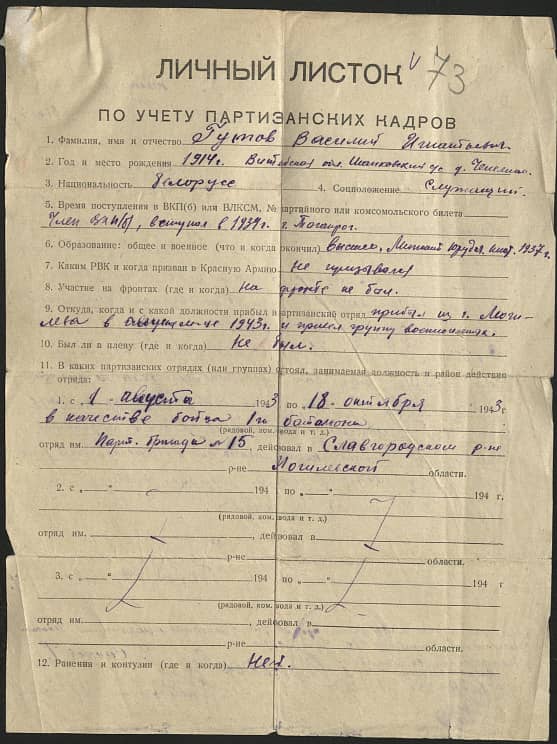 ЛИЧНЫЙ ЛИСТОК
73
ПО УЧЕТУ ПАРТИЗАНСКИХ КАДРОВ
1. Фамилия, имя и отчество Гутов Василий Игнатьевич
2. Год и место рождения 1914г. Витебская обл. д.
3. Национальность белорусс 4. Соцположение Служащий.
5. Время поступления в ВКП(б) или ВЛКСМ, № партийного или комсомольского билета
Член ВКП(б), вступил в 1939г. г. Таганрог.
6. Образование: общее и военное (что и когда окончил) высшее, 1937г.
7. Каким РВК и когда призван в Красную Армию не призывался
8. Участие на фронтах (где и когда) На фронте не был.
9. Откуда, когда и с какой должности прибыл в партизанский отряд прибыл из г. Моги-
лева в августе м-це 1943г. и привел группу военнопленных.
10. Был ли в плену (где и когда) Не был.
11. В каких партизанских отрядах (или группах) состоял, занимаемая должность и район действия
отряда:
1. с 1 - августа 1943 по 18 - октября 1943 г.
в качестве бойца 1го батальона
(рядовой, ком. взвода и т. д.)
отряд им. Парт. бригада № 15, действовал в Славгородском р-не
р-не Могилевской области.
2. с „ “ 194 по „ “ 194 г.
(рядовой, ком. взвода и т. д.)
отряд им. , действовал в
р-не области.
3. с „ “ 194 по „ “ 194 г.
(рядовой, ком. взвода и т. д.)
отряд им. , действовал в
р-не области.
12. Ранения и контузии (где и когда) Нет.